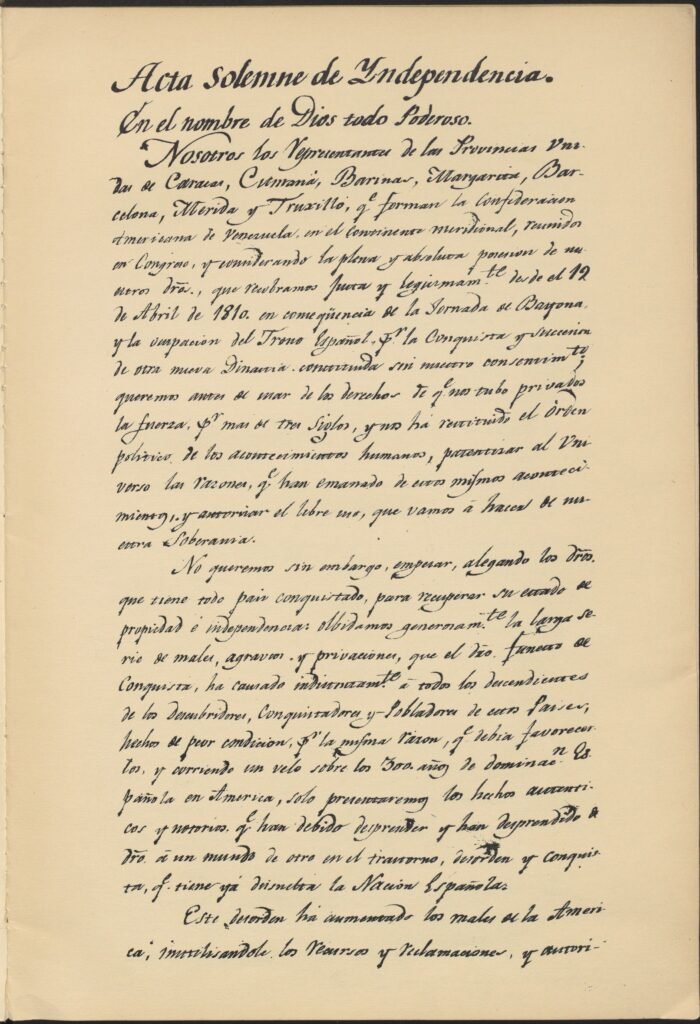 Acta Solemne de Yndependencia.
En el nombre de Dios todo Poderoso.
Nosotros los Representantes de las Provincias Uni-
das de Caracas, Cumaná, Barinas, Margarita, Bar-
celona, Mérida y Truxillo, q.e forman la Confederacion
Americana de Venezuela. en el Continente meridional, reunidos
en Congreso, y considerando la plena y absoluta posesion de nu-
estros dro.s, que recobramos justa y legitimam.te desde el 19
de Abril de 1810. en conseqüencia de la Jornada de Bayona,
y la ocupacion del Trono Español. p.r la Conquista y succesion
de otra nueva Dinastia. constituida sin nuestro consentim.to;
queremos antes de usar de los derechos de q.e nos tubo privados
la fuerza, p.r mas de tres siglos, y nos há restituido el órden
politico, de los acontecimientos humanos, patentizar al Uni
verso las razones, q.e han emanado de estos mismos aconteci-
mientos, y autorizar el libre uso, que vamos á hacer de nu-
estra Soberania.
No queremos sin embargo, empezar, alegando los dro.s,
que tiene todo pais conquistado, para recuperar su estado de
propiedad é independencia: olbidamos generosam.te la larga se-
rie de males, agravios, y privaciones, que el dro. funesto de
Conquista, ha causado indistintam.te á todos los descendientes
de los descubridores, Conquistadores y Pobladores de estos Paises,
hechos de peor condicion, p.r la misma razon, q.e debia favorecer
los, y corriendo un velo sobre los 300. años de dominac.n Es
pañola en America, solo presentaremos los hechos autenti-
cos y notorios. q.e han debido desprender y han desprendido de
dro. á un mundo de otro en el trastorno, desorden y conquis-
ta, q.e tiene yá disuelta la Nacion Española.
Este desorden há aumentado los males de la Ameri
ca, inutilisandole los recursos y reclamaciones, y autori-